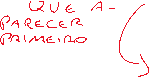 QUE A-
PARECER
PRIMEIRO